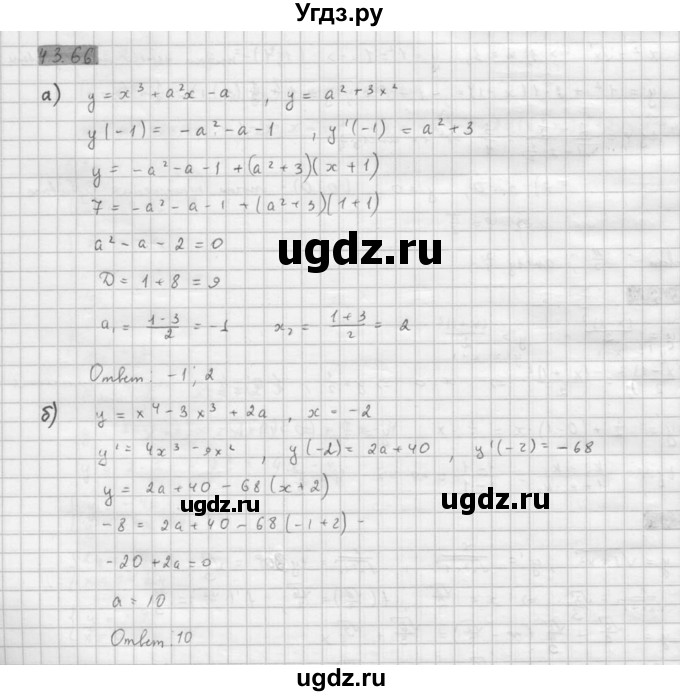 Угдз.ру
43.66
а) y = x³ + a²x - a , y = a² + 3x²
y(-1) = -a² - a - 1 , y'(-1) = a² + 3
y = -a² - a - 1 + (a² + 3)(x + 1)
7 = -a² - a - 1 + (a² + 3)(1 + 1)
a² - a - 2 = 0
ugdz.ru
D = 1 + 8 = 9
a₁ = (1-3)/2 = -1 x₂ = (1+3)/2 = 2
Ответ: -1; 2
б) y = x⁴ - 3x³ + 2a , x = -2
y' = 4x³ - 9x² , y(-2) = 2a + 40 , y'(-2) = -68
y = 2a + 40 - 68(x + 2)
ugdz.ru ugdz.ru
-8 = 2a + 40 - 68(-1 + 2)
-20 + 2a = 0
a = 10
Ответ 10
ugdz.ru
ugdz.ru